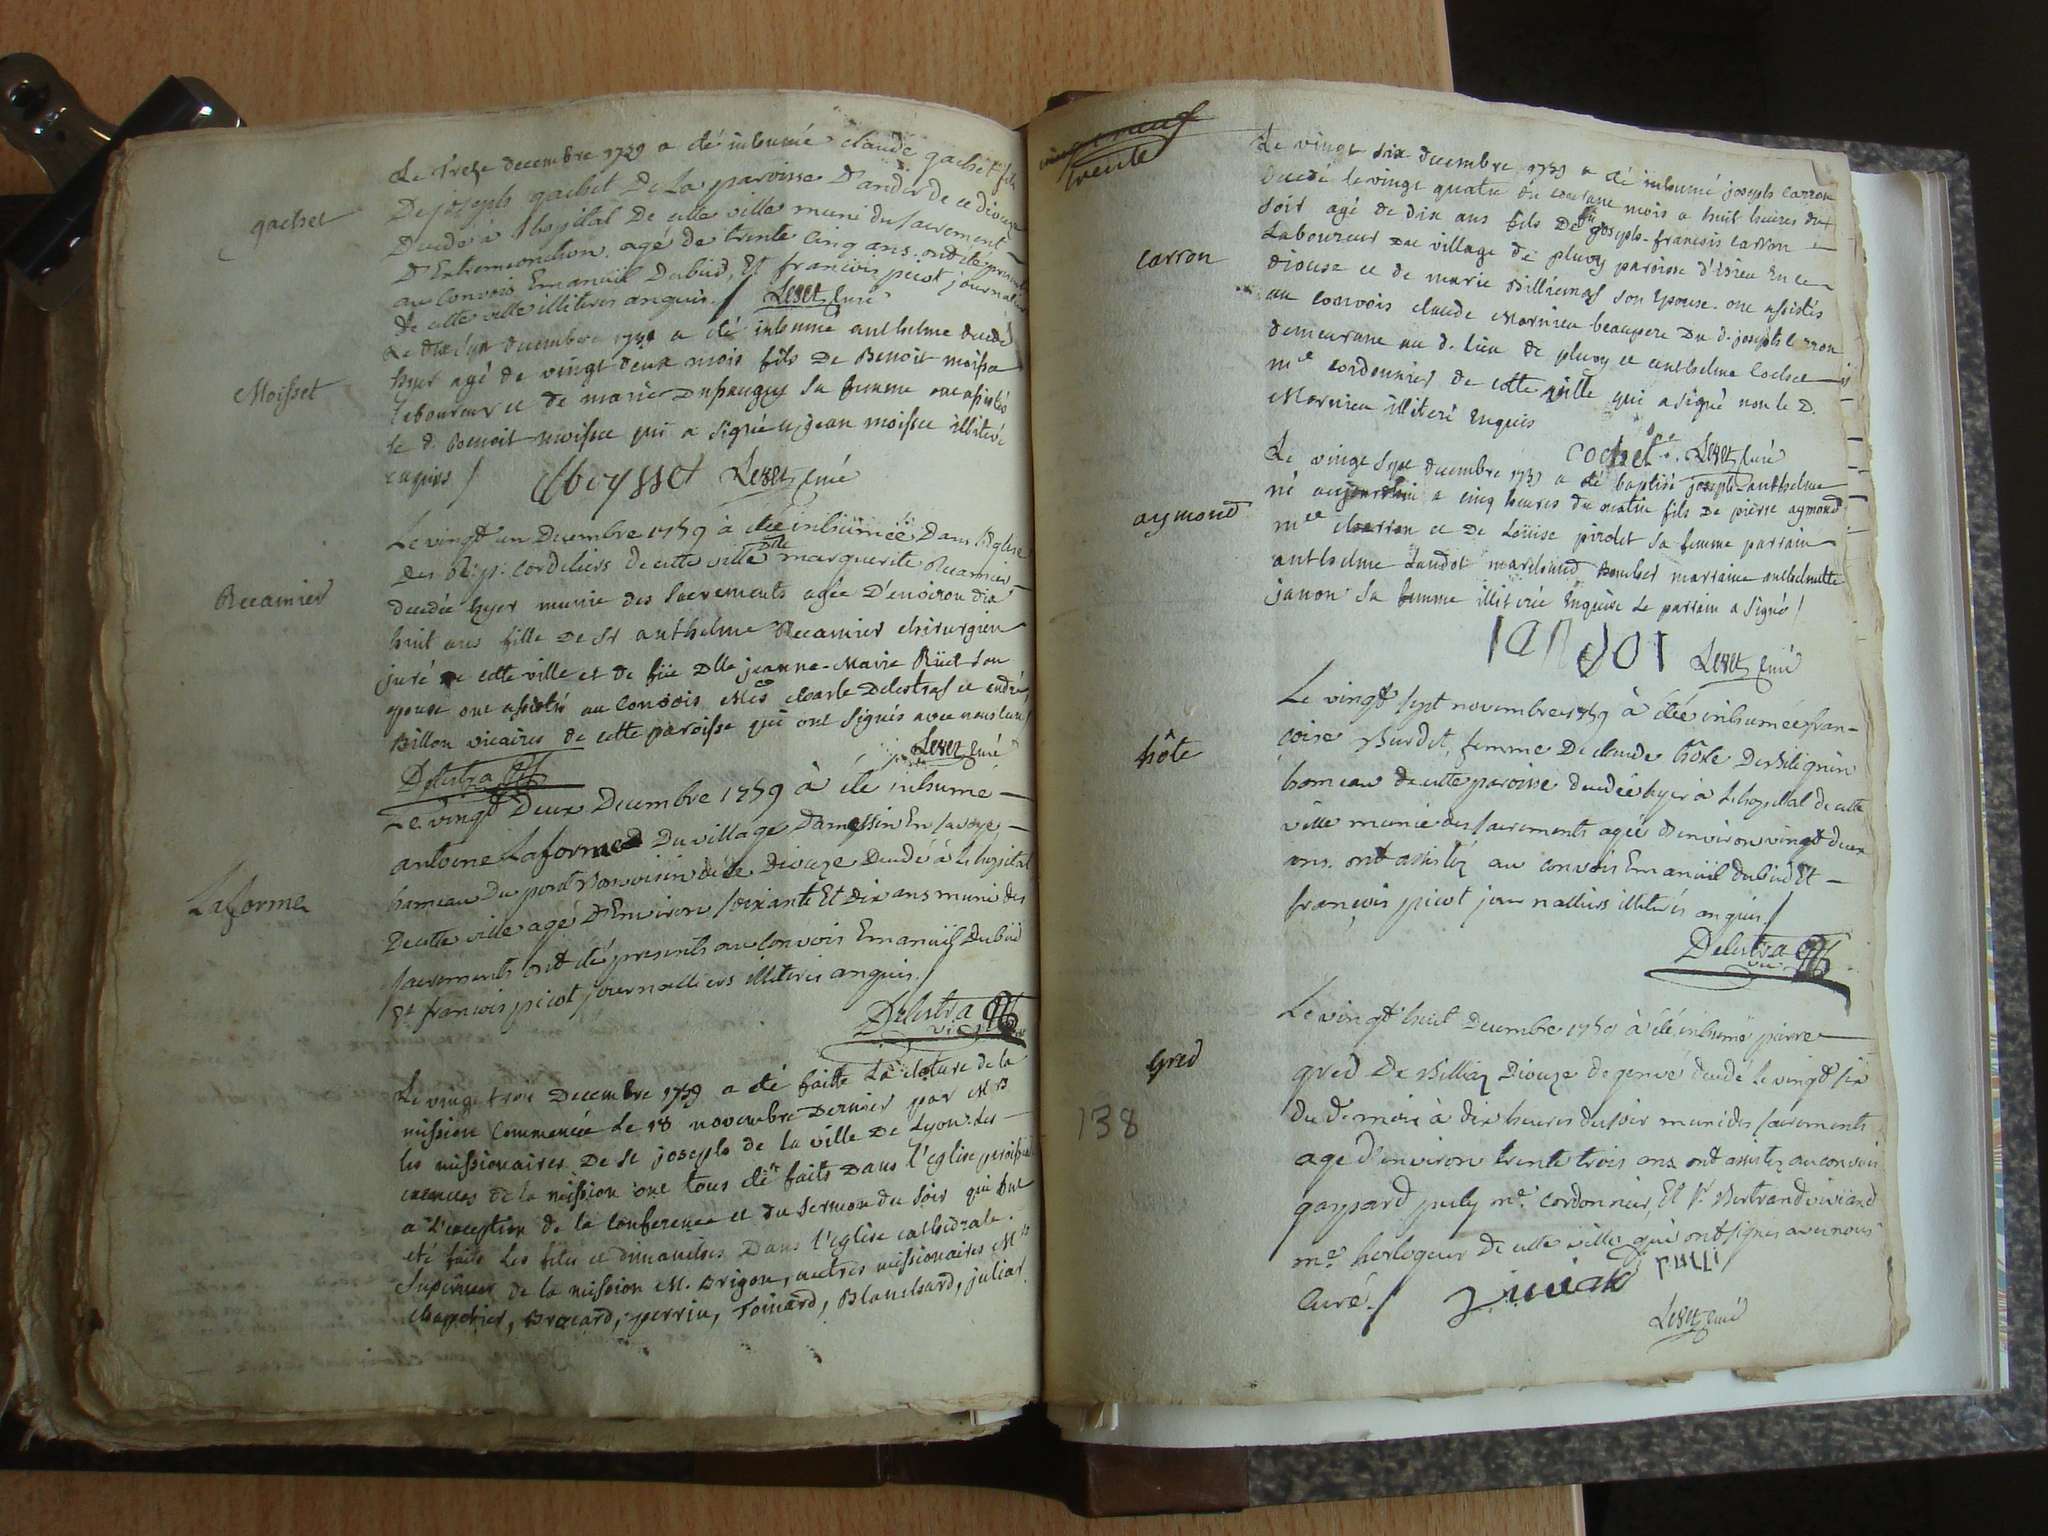 gachet
Le Treze decembre 1759 a été inhumé claude gachet fils
De joseph gachet De La paroisse D'andir de ce dioceze
Decedé à l'hopital De cette ville muni du sacrement
D'Extremonction agé de trente cinq ans. ont été presents
au Convois Emanüel Dubud, Et francois picot journaliers
de cette ville illiteres anquis./ Leset Curé
Moisset
Le dix sept decembre 1759 a été inhumé anthelme decedé
hyer agé de vingt deux mois fils de Benoit moisse
laboureur et de marie Dupeuguy sa femme ont assistés
le d. Benoit moisse qui a signé et jean moisse illiteré
enquis / Moysset Leset Curé
Recamier
Le vingt un Decembre 1759 à été inhümée Dans l'Eglise
Des R: p: cordeliers de cette ville Dlle marguerite Recamier
decedée hyer munie des Sacrements agée D'environ dix
huit ans fille de Sr anthelme Recamier chirurgien
juré de cette ville et de füe Dlle jeanne-Marie Rüet son
epouse ont assistés au Convois Mes charle Delestras et andré
Billon vicaires de cette paroisse qui ont signés avec nous curé
Leset Curé
Delestra
Laforme
Le vingt Deux Decembre 1759 à été inhume
antoine Laforme Du village Damessin En savoye,
hameau Du pont Bonvoisin de ce Dioceze Decedé à L'hopital
De cette ville agé D'Environ soixante Et Dix ans muni des
sacrements ont été presents au Convois Emanüel Dubüd
Et francois picot journalliers illiteres anquis./
Delestra vic
Le vingt trois Decembre 1759 a été faitte La cloture de la
mission Commencée Le 18 novembre Dernier par Mrs
les missionaires De St joseph de la ville De Lyon. Les
exercices de la mission ont tous été faits Dans l'eglise paroissialle
a l'exception de la Conference et du Sermon du Soir qui ont
eté faits Les fêtes et dimanches Dans l'eglise cathedrale.
Superieur de la mission M. Brigon, autres missionaires Mrs
Chapotier, Brocard, perrin, Toinard, Blanchard, juliar
vingt neuf
trente
Carron
Le vingt Six decembre 1759 a été inhumé joseph Carron
Decedé le vingt quatre du courant mois a huit heures du
soir agé de Dix ans fils De fu joseph-francois Carron
Laboureur Du village de pluvy paroisse d'izieu En ce
diocese et de marie Billiemas son Epouse. ont assistés
au Convois claude Marnieu beaupere Du d. joseph Carron
demeurant au d. lieu de pluvy et anthelme Cochet
me cordonnier de cette ville qui a signé non le D.
Marnieu illiteré Enquis
cochet Leset Curé
aymond
Le vingt Sept decembre 1759 a été baptisé joseph-anthelme
né aujourdhui a cinq heures du matin fils De pierre aymond
me charron et De Loüise pirolet sa femme parrain
anthelme Landot marchand boucher marraine anthelmette
janon sa femme illiterée Enquise Le parrain a signé /
lANDOT Leset Curé
hôte
Le vingt sept novembre 1759 à été inhumée fran-
coise Burdet, femme De claude hôte De Bilignin
hameau de cette paroisse decedée hyer à L'hopital de cette
ville munie des sacrements agée d'environ vingt deux
ans. ont assistez au convois Emanüel Dubüd Et
francois picot journalliers illiterés anquis./
Delestra vic
gred
Le vingt huit Decembre 1759 à été inhumé pierre
gred De Billiaz Dioceze de genéve decedé Le vingt six
du d. mois à dix heures du soir muni des sacrements
agé d'environ trente trois ans ont assistez au convois
gaspard puly me. cordonnier, Et Sr. Bertrand viviand
me horlogeur de cette ville, qui ont signés avec nous
Curé./ viviand PULLI
Leset Curé
138